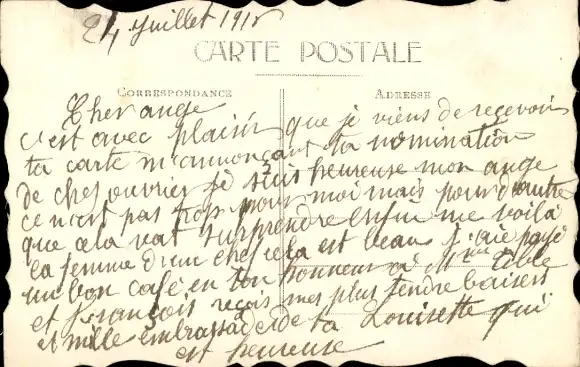 24 Juillet 1918
CARTE POSTALE
CORRESPONDANCE
ADRESSE
Cher ange
c'est avec plaisir que je viens de recevoir
ta carte m'annonçant ta nomination
de chef ouvrier je suis heureuse mon ange
ce n'est pas trop pour moi mais pour d'autre
que cela vat surprendre enfin me voilà
la femme d'un chef cela est beau j'aie payé
un bon café en ton honneur a Mme
et François reçois mes plus tendre baisers
et mille embrassade de ta Louisette qui
est heureuse